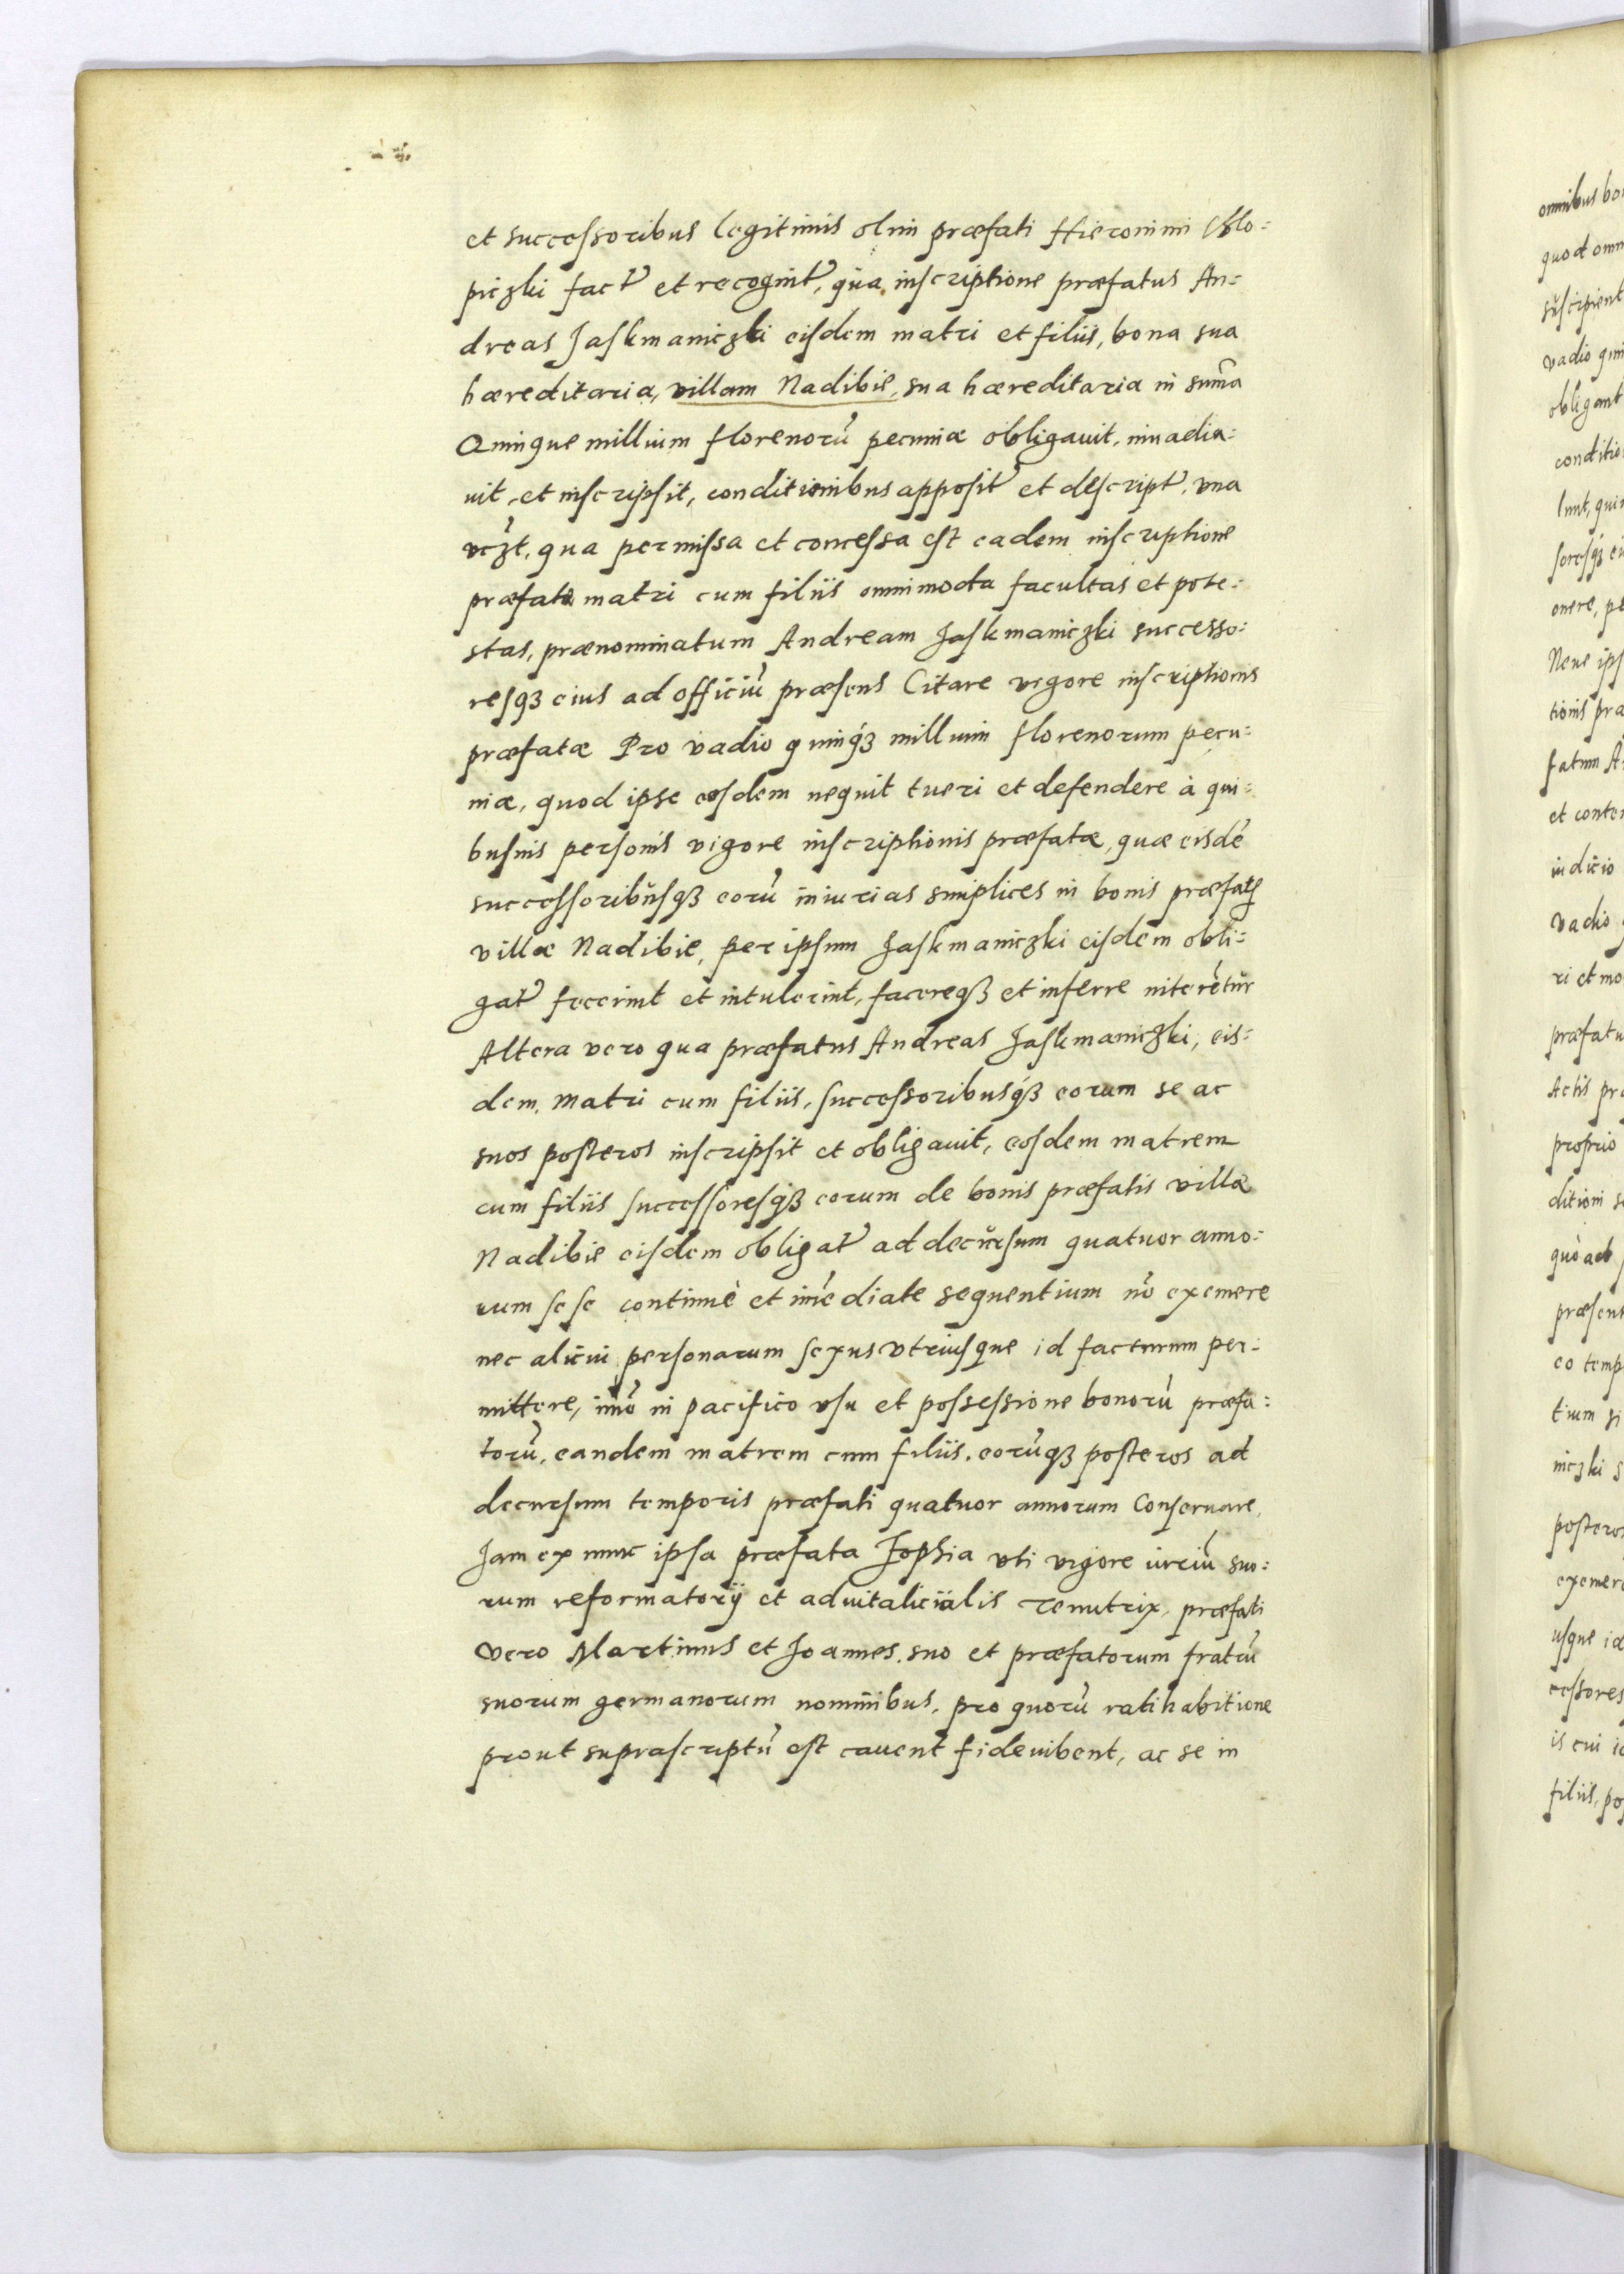 et successoribus legitimis olim præfati Hieronimi Chlo:
piczki fact̃ et recognit̃, qua inscriptione præfatus An=
dreas Jaskmaniczki eisdem matri et filiis, bona sua
hæreditaria, villam Nadibie, sua hæreditaria in sum̃a
Quinque millium florenorũ pecuniæ obligauit, inuadia:
uit, et inscripsit, conditionibus apposit̃ et descript̃, vna
vcz̃t, qua permissa et concessa est eadem inscriptione
præfatæ matri cum filiis omnimoda facultas et pote:
stas, prænominatum Andream Jaskmaniczki successo:
resqz eius ad officiũ præsens Citare vigore inscriptionis
præfatæ Pro vadio quinqz millium florenorum pecu:
niæ, quod ipse eosdem nequit tueri et defendere à qui:
busuis personis vigore inscriptionis præfatæ, quæ eisdẽ
successoribusqz eorũ iniurias simplices in bonis præfatę
villæ Nadibie, per ipsum Jaskmaniczki eisdem obli:
gat̃ fecerint et intulerint, facereqz et inferre niterẽtur
Altera vero qua præfatus Andreas Jaskmaniczki, eis:
dem matri cum filiis, successoribusqz eorum se ac
suos posteros inscripsit et obligauit, eosdem matrem
cum filiis successoresqz eorum de bonis præfatis villæ
Nadibie eisdem obligat̃ ad decursum quatuor anno:
rum sese continuè et im̃ediate sequentium nõ exemere
nec alicui personarum sexus vtriusque id facturum per:
mittere, im̃o in pacifico vsu et possessione bonorũ præfa:
torũ, eandem matrem cum filiis, eorũqz posteros ad
decursum temporis præfati quatuor annorum Conseruare,
Jam ex nunc ipsa præfata Zophia vti vigore iurciũ suo:
rum reformatorij et aduitalicialis Tenutrix, præfati
vero Martinus et Joannes, suo et præfatorum fratrũ
suorum germanorum nominibus, pro quorũ ratihabitione
prout suprascriptũ est cauent fideiubent, ac se in